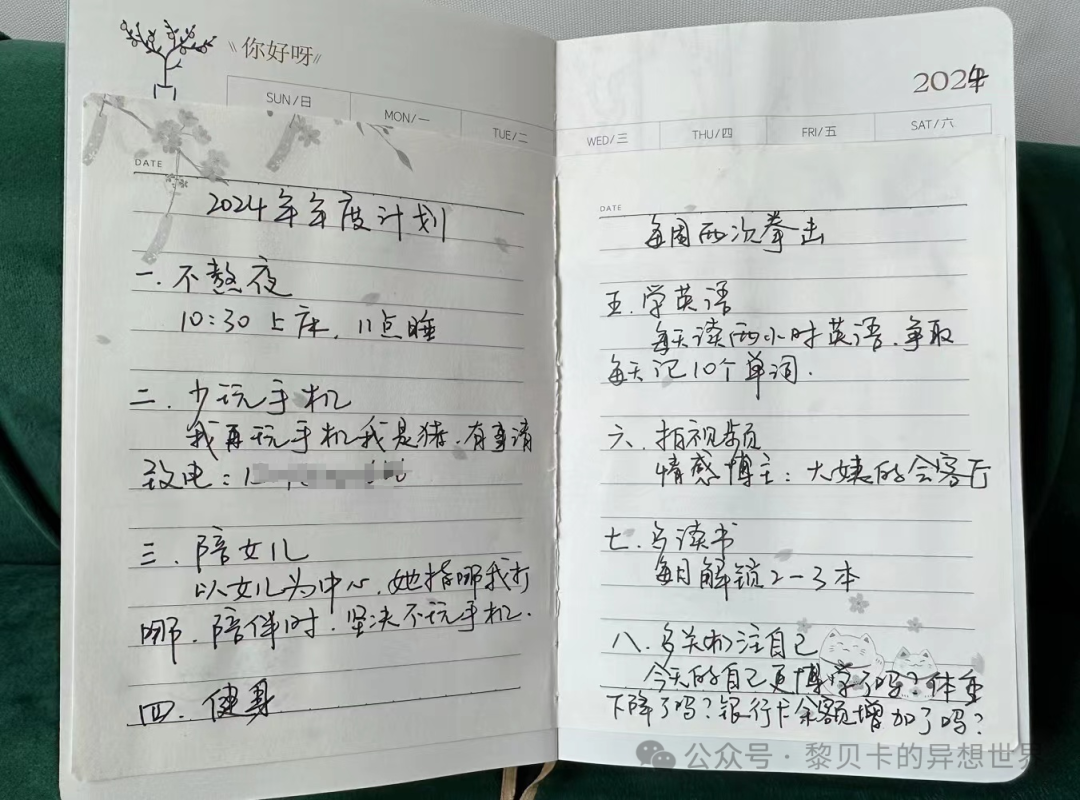 《你好呀》
SUN/日
MON/一
TUE/二
DATE
2024年年度计划
一.不熬夜
10:30上床,11点睡
二.少玩手机
我再玩手机我是猪.有事请
致电:1
三.陪女儿
以女儿为中心,她指哪我打
哪.陪伴时.坚决不玩手机.
四.健身
2024
WED/三
THU/四
FRI/五
SAT/六
DATE
每周两次拳击
五.学英语
每天读两小时英语.争取
每天记10个单词.
六.拍视频
情感博主:大姨的会客厅
七.多读书
每日解锁2-3本
八.多关注自己
今天的自己更博学了吗?体重
下降了吗?银行卡余额增加了吗?
公众号·黎贝卡的异想世界